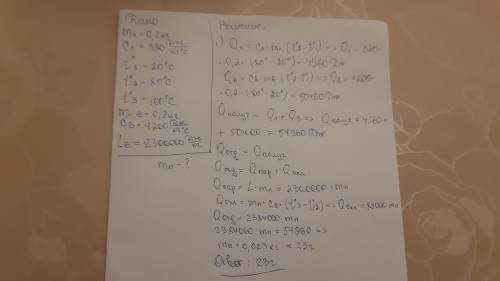 Дано
mл = 0,2 кг
cл = 380 Дж/кг°C
t°1 - 20°C
t°2 - 80°C
t°3 - 100°C
mв = 0,2 кг
cв = 4200 Дж/кг°C
Lв = 2300000 Дж/кг
mп - ?
Решение:
1) Qл = cл · mл (t°2 - t°1) => Qл = 380 ·
· 0,2 · (80° - 20°) = 4560 Дж
Qв = cв · mв (t°2 - t°1) => Qв = 4200 ·
· 0,2 · (80° - 20°) = 50400 Дж
Qполуч = Qл + Qв => Qполуч = 4560 +
+ 50400 = 54960 Дж
Qотд = Qполуч
Qотд = Qпар + Qохл
Qпар = L · mп = 2300000 · mп
Qохл = mп · cв · (t°3 - t°2) => Qохл = 84000 mп
Qотд = 2384000 · mп
2384000 mп = 54960 =>
mп = 0,023 кг = 23 г
Ответ: 23 г